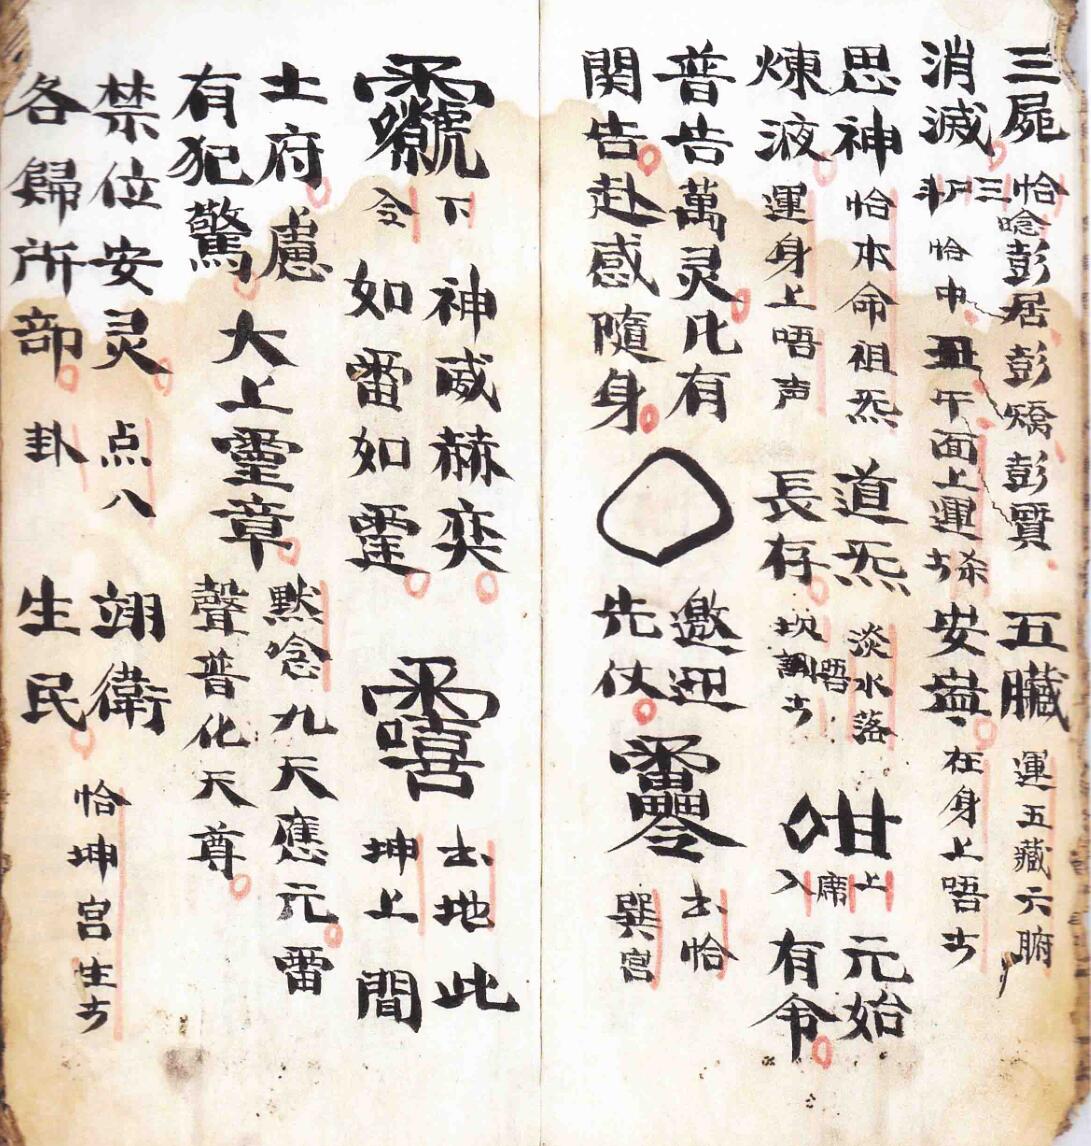 三屍恰唸彭居彭矯彭質五臟運五藏六腑
消滅三尸恰中丑午面上運安在身上唔
思神恰本命祖炁道炁淡水落上元始
煉液運身上唔声長存坎唔調入席有令
普告萬灵凢有邀迎恰
関告赴感隨身先仗巽宮
下神威赫奕地此
令如雷如霆坤上間
土府慮
有犯驚
大上靈章
黙唸九天應元雷
聲普化天尊
禁位安灵点八翊衛
各歸所部卦生民
恰坤宮生